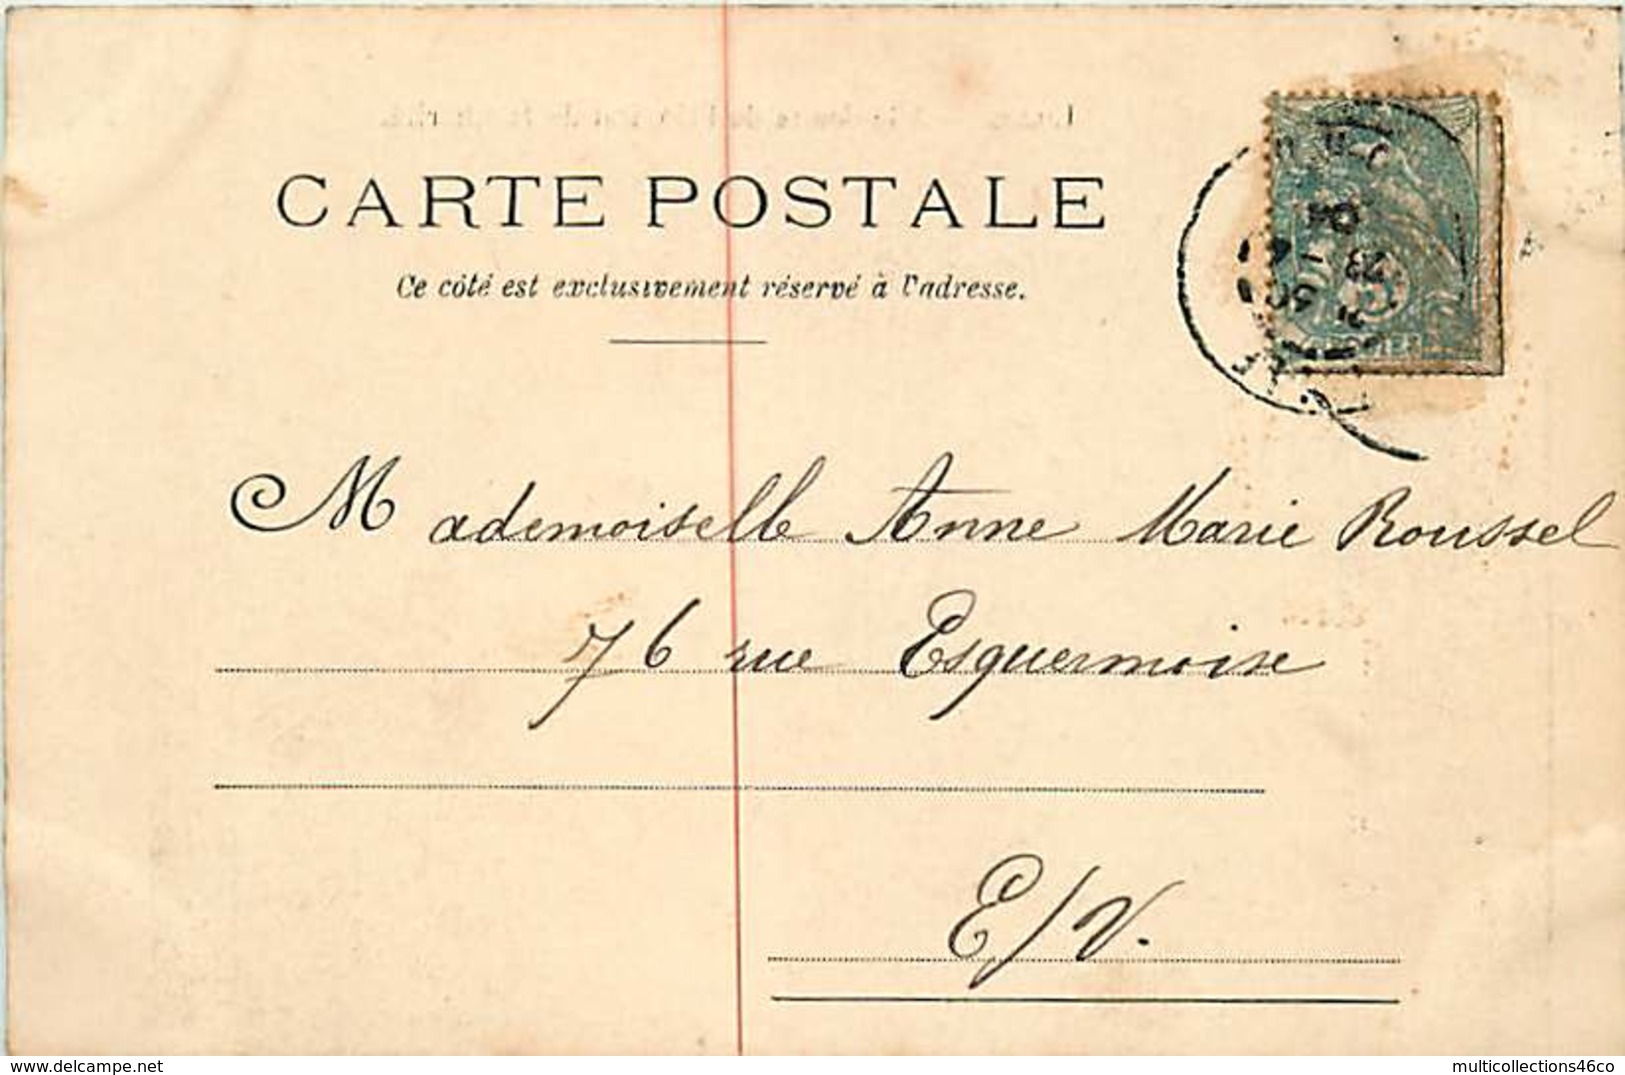 CARTE POSTALE
Ce côté est exclusivement réservé à l'adresse.
Mademoiselle Anne Marie Roussel
76 rue Esquermoise
E/V.
https://www.delcampe.net
multicollections46co